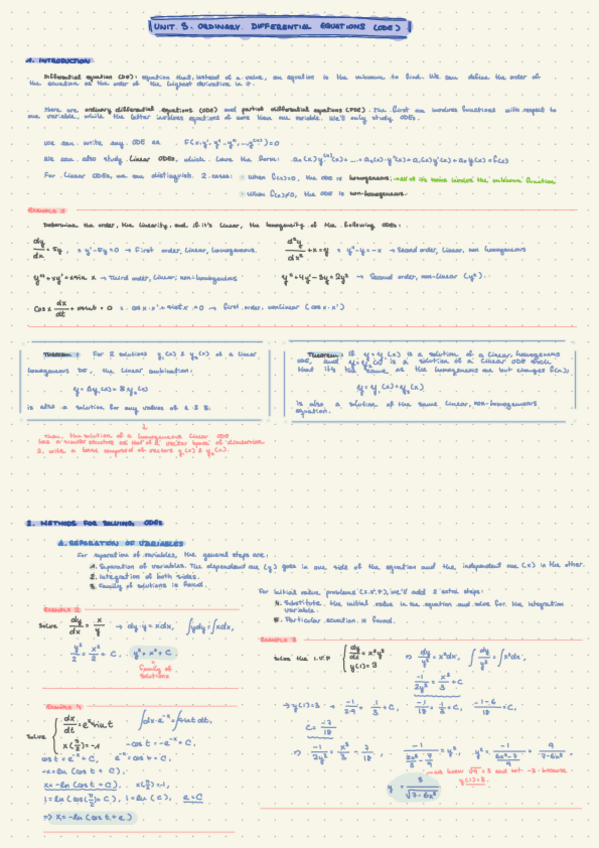 UNIT. 3. ORDINARY DIFFERENTIAL EQUATIONS (ODE)
1. INTRODUCTION
Differential equation (DE): equation that, instead of a value, an equation is the unknown to find. We can define the order of
the equation as the order of the highest derivative in it.
There are ordinary differential equations (ODE) and partial differential equations (PDE). The first one involves functions with respect to
one variable, while the latter involves equations of more than one variable. We'll only study ODEs.
We can write any ODE as F(x, y', y'', ..., y⁽ⁿ⁾) = 0
We can also study Linear ODEs, which have the form:
For Linear ODEs, we can distinguish 2 cases: When f(x)=0, the ODE is homogeneous
When f(x)≠0, the ODE is non-homogeneous.
EXAMPLE 1
Determine the order, the linearity, and if it's linear, the homogeneity of the following ODEs:
dy/dx = 5y, = y' - 5y = 0 → First order, linear, homogeneous.
d²y/dx² + x = y = y'' - y = -x → Second order, linear, non homogeneous
→ Third order, linear, non-homogeneous
y'' + 4y' - 3y = 2y² → Second order, non-linear (y²).
cos x dx/dt + x sin t = 0 → first order, nonlinear (cos x · x')
Theorem: For 2 solutions y₁(x) & y₂(x) of a linear
homogeneous DE, the linear combination:
y = Ay₁(x) + By₂(x)
is also a solution for any values of A & B.
Theorem: If y = y₁(x) is a solution of a linear, homogeneous
ODE, and y = y₂(x) is a solution of a linear ODE such
that it's the same as the homogeneous one but changes f(x):
y = y₁(x) + y₂(x)
is also a solution of the same linear, non-homogeneous
equation.
Then, the solution of a homogeneous linear ODE
has a similar structure as that of a vector space of dimension
2, with a base composed of vectors y₁(x) & y₂(x).
2. METHODS FOR SOLVING ODEs
1. SEPARATION OF VARIABLES
For separation of variables, the general steps are:
1. Separation of variables. The dependent one (y) goes in one side of the equation and the independent one (x) in the other.
2. Integration of both sides.
3. Family of solutions is found.
For initial value problems (I.V.P), we'll add 2 extra steps:
4. Substitute the initial value in the equation and solve for the integration
variable.
5. Particular equation is found.
EXAMPLE 2
Solve dy/dx = x/y → dy·y = xdx, ∫ydy = ∫xdx,
y²/2 = x²/2 + C, y² = x² + C
Family of
solutions
EXAMPLE 3
Solve the I.V.P { dy/dx = x²y³ ⇒ dy/y³ = x²dx, ∫dy/y³ = ∫x²dx,
y(1) = 3
-1/2y² = x³/3 + C
→ y(1)=3 → -1/2·9 = 1/3 + C, -1/18 = 1/3 + C, -1-6/18 = C,
C = -7/18
⇒ -1/2y² = x³/3 - 7/18,
y(1)=3.
y = 3/√7-6x³
EXAMPLE 4
Solve { dx/dt = eˣ sin t ∫dx·e⁻ˣ = ∫sin t dt,
x(π/2) = -1 -cos t = -e⁻ˣ + C,
cos t = e⁻ˣ + C, e⁻ˣ = cos t + C,
-x = ln(cos t + C),
x = -ln(cos t + C), x(π/2) = -1,
1 = ln(cos(π/2) + C), 1 = ln(C), e = C
⇒ x = -ln(cos t + e)